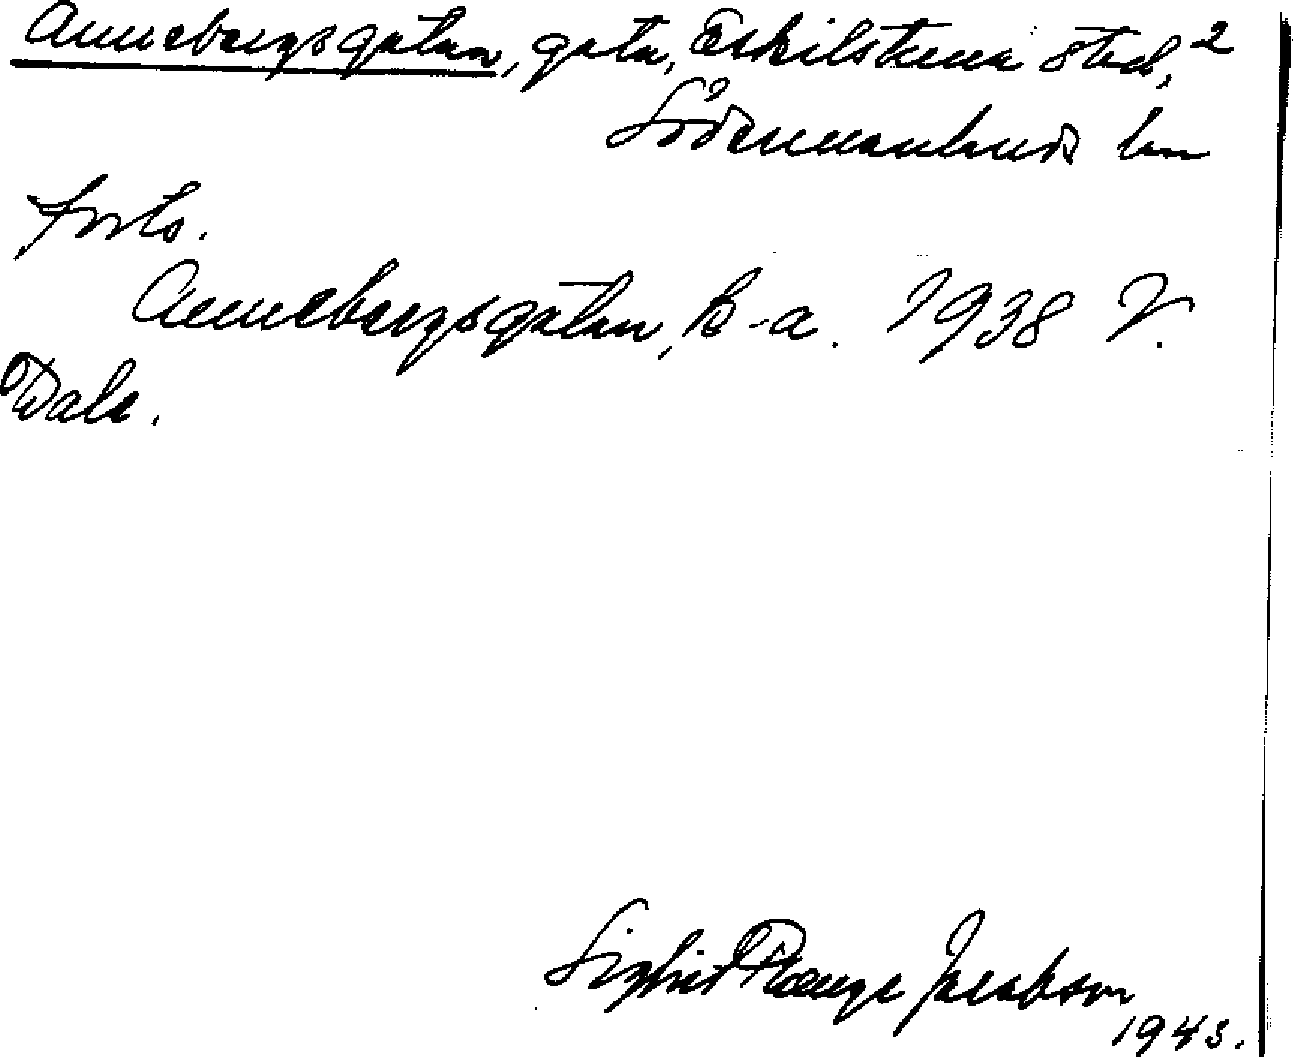 Annebergsgatan, gata, Eskilstuna stad, 2
Södermanlands län
forts.
Annebergsgatan, k-a. 1938 V.
Dala.
Sigfrid Jacobson
1943.